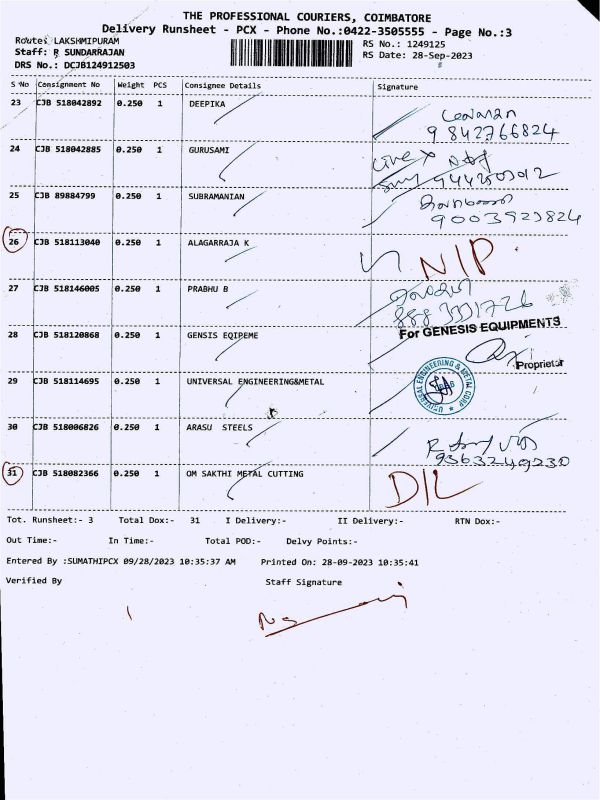 THE PROFESSIONAL COURIERS, COIMBATORE
Delivery Runsheet - PCX - Phone No.:0422-3505555 - Page No.:3
Route: LAKSHMIPURAM RS No.: 1249125
Staff: R SUNDARRAJAN RS Date: 28-Sep-2023
DRS No.: DCJB124912503
S No Consignment No Weight PCS Consignee Details Signature
23 CJB 518042892 0.250 1 DEEPIKA
9842766824
24 CJB 518042885 0.250 1 GURUSAMI
25 CJB 89884799 0.250 1 SUBRAMANIAN
9003923824
26 CJB 518113040 0.250 1 ALAGARRAJA K N/P
27 CJB 518146005 0.250 1 PRABHU B
28 CJB 518120868 0.250 1 GENSIS EQIPEME For GENESIS EQUIPMENTS
Proprietor
29 CJB 518114695 0.250 1 UNIVERSAL ENGINEERING&METAL UNIVERSAL ENGINEERING & METAL CORP
30 CJB 518006826 0.250 1 ARASU STEELS
9363249230
31 CJB 518082366 0.250 1 OM SAKTHI METAL CUTTING D/L
Tot. Runsheet:- 3 Total Dox:- 31 I Delivery:- II Delivery:- RTN Dox:-
Out Time:- In Time:- Total POD:- Delvy Points:-
Entered By :SUMATHIPCX 09/28/2023 10:35:37 AM Printed On: 28-09-2023 10:35:41
Verified By Staff Signature